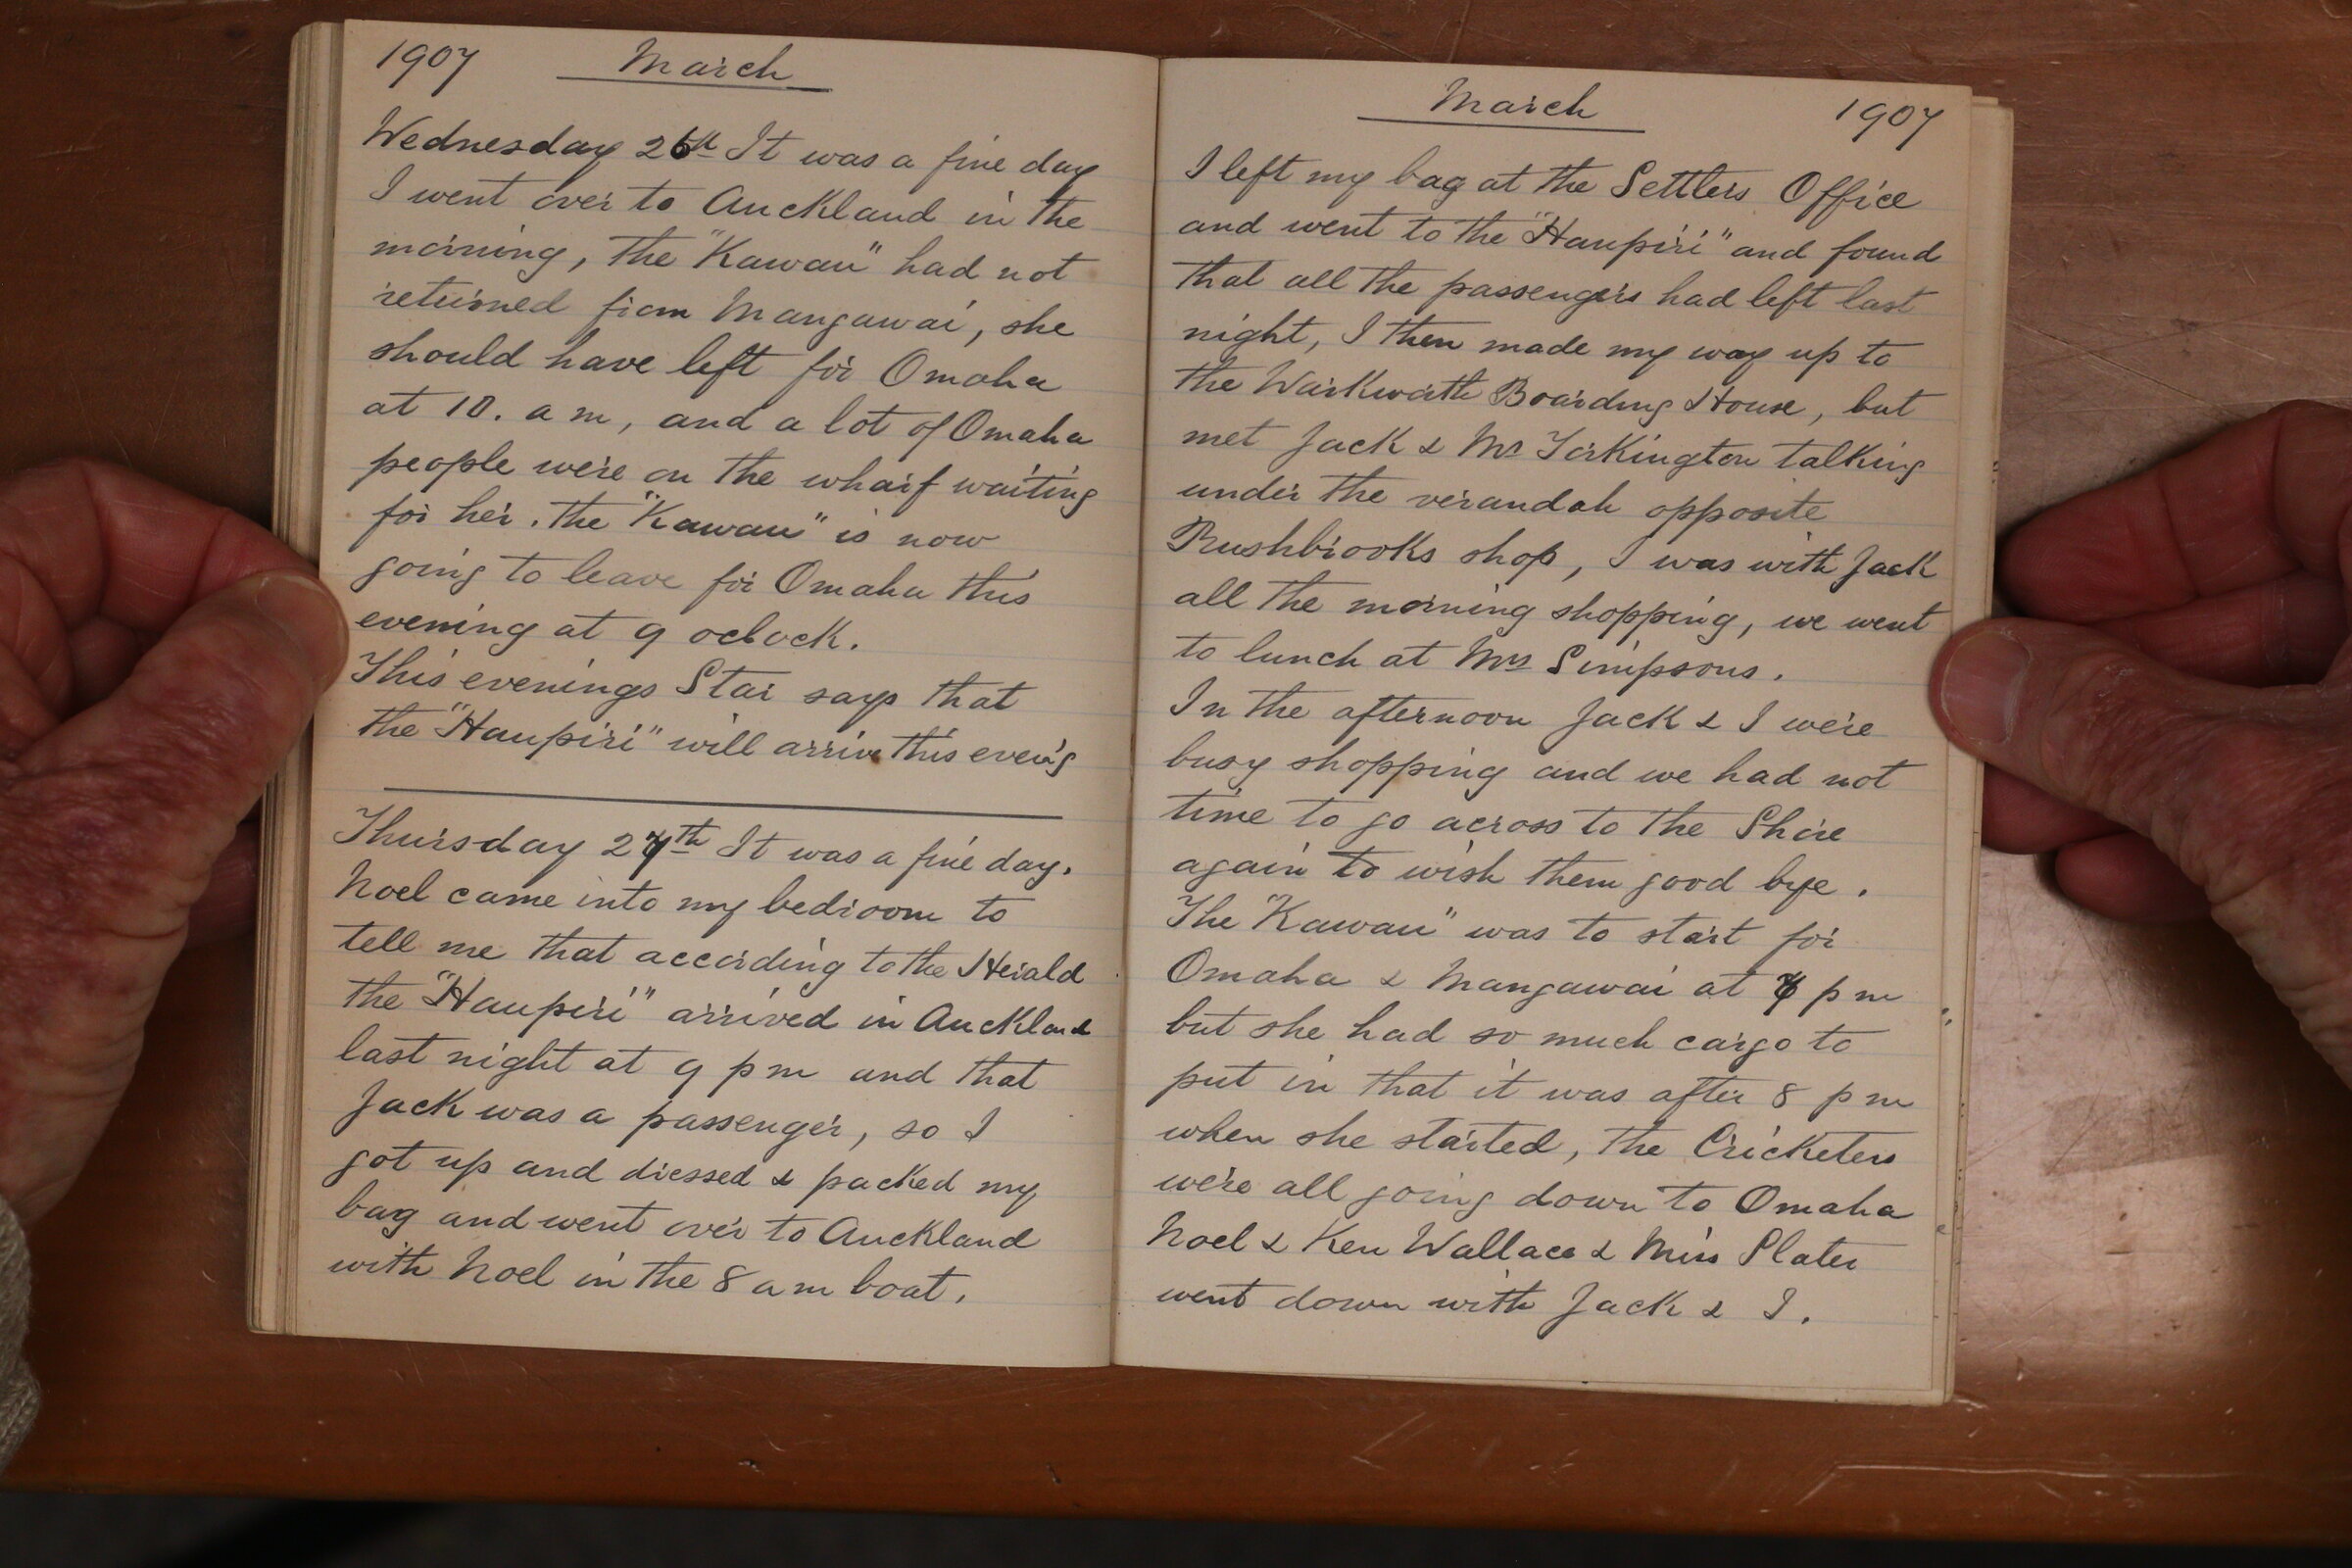 1907 March
Wednesday 26th It was a fine day
I went over to Auckland in the
morning, the "Kawau" had not
returned from Mangawai, she
should have left for Omaha
at 10. a m, and a lot of Omaha
people were on the wharf waiting
for her. the "Kawau" is now
going to leave for Omaha this
evening at 9 oclock.
This evenings Star says that
the "Haupiri" will arrive this even'g
Thursday 27th It was a fine day.
Noel came into my bedroom to
tell me that according to the Herald
the "Haupiri" arrived in Auckland
last night at 9 p m and that
Jack was a passenger, so I
got up and dressed & packed my
bag and went over to Auckland
with Noel in the 8 a m boat.
March 1907
I left my bag at the Settlers Office
and went to the "Haupiri" and found
that all the passengers had left last
night, I then made my way up to
the Warkworth Boarding House, but
met Jack & Mr Torkington talking
under the verandah opposite
Rushbrooks shop, I was with Jack
all the morning shopping, we went
to lunch at Mrs Simpsons.
In the afternoon Jack & I were
busy shopping and we had not
time to go across to the Shore
again to wish them good bye.
The "Kawau" was to start for
Omaha & Mangawai at 7 p m
but she had so much cargo to
put in that it was after 8 p m
when she started, the Cricketers
were all going down to Omaha
Noel & Ken Wallace & Miss Slater
went down with Jack & I.